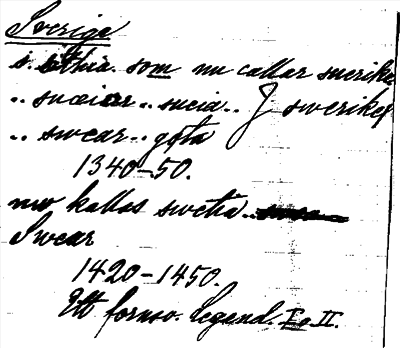 Sverige
i. sithia som nu callar suerike
.. suæiar .. sucia .. J swerike
.. swear .. gøta
1340-50.
nw kallas swetia ..
Swear
1420-1450.
Ett fornsv. Legend. I o II.